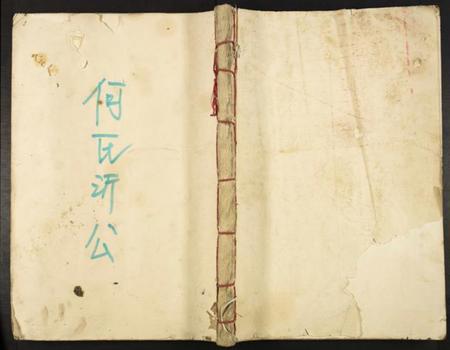 何氏沂公